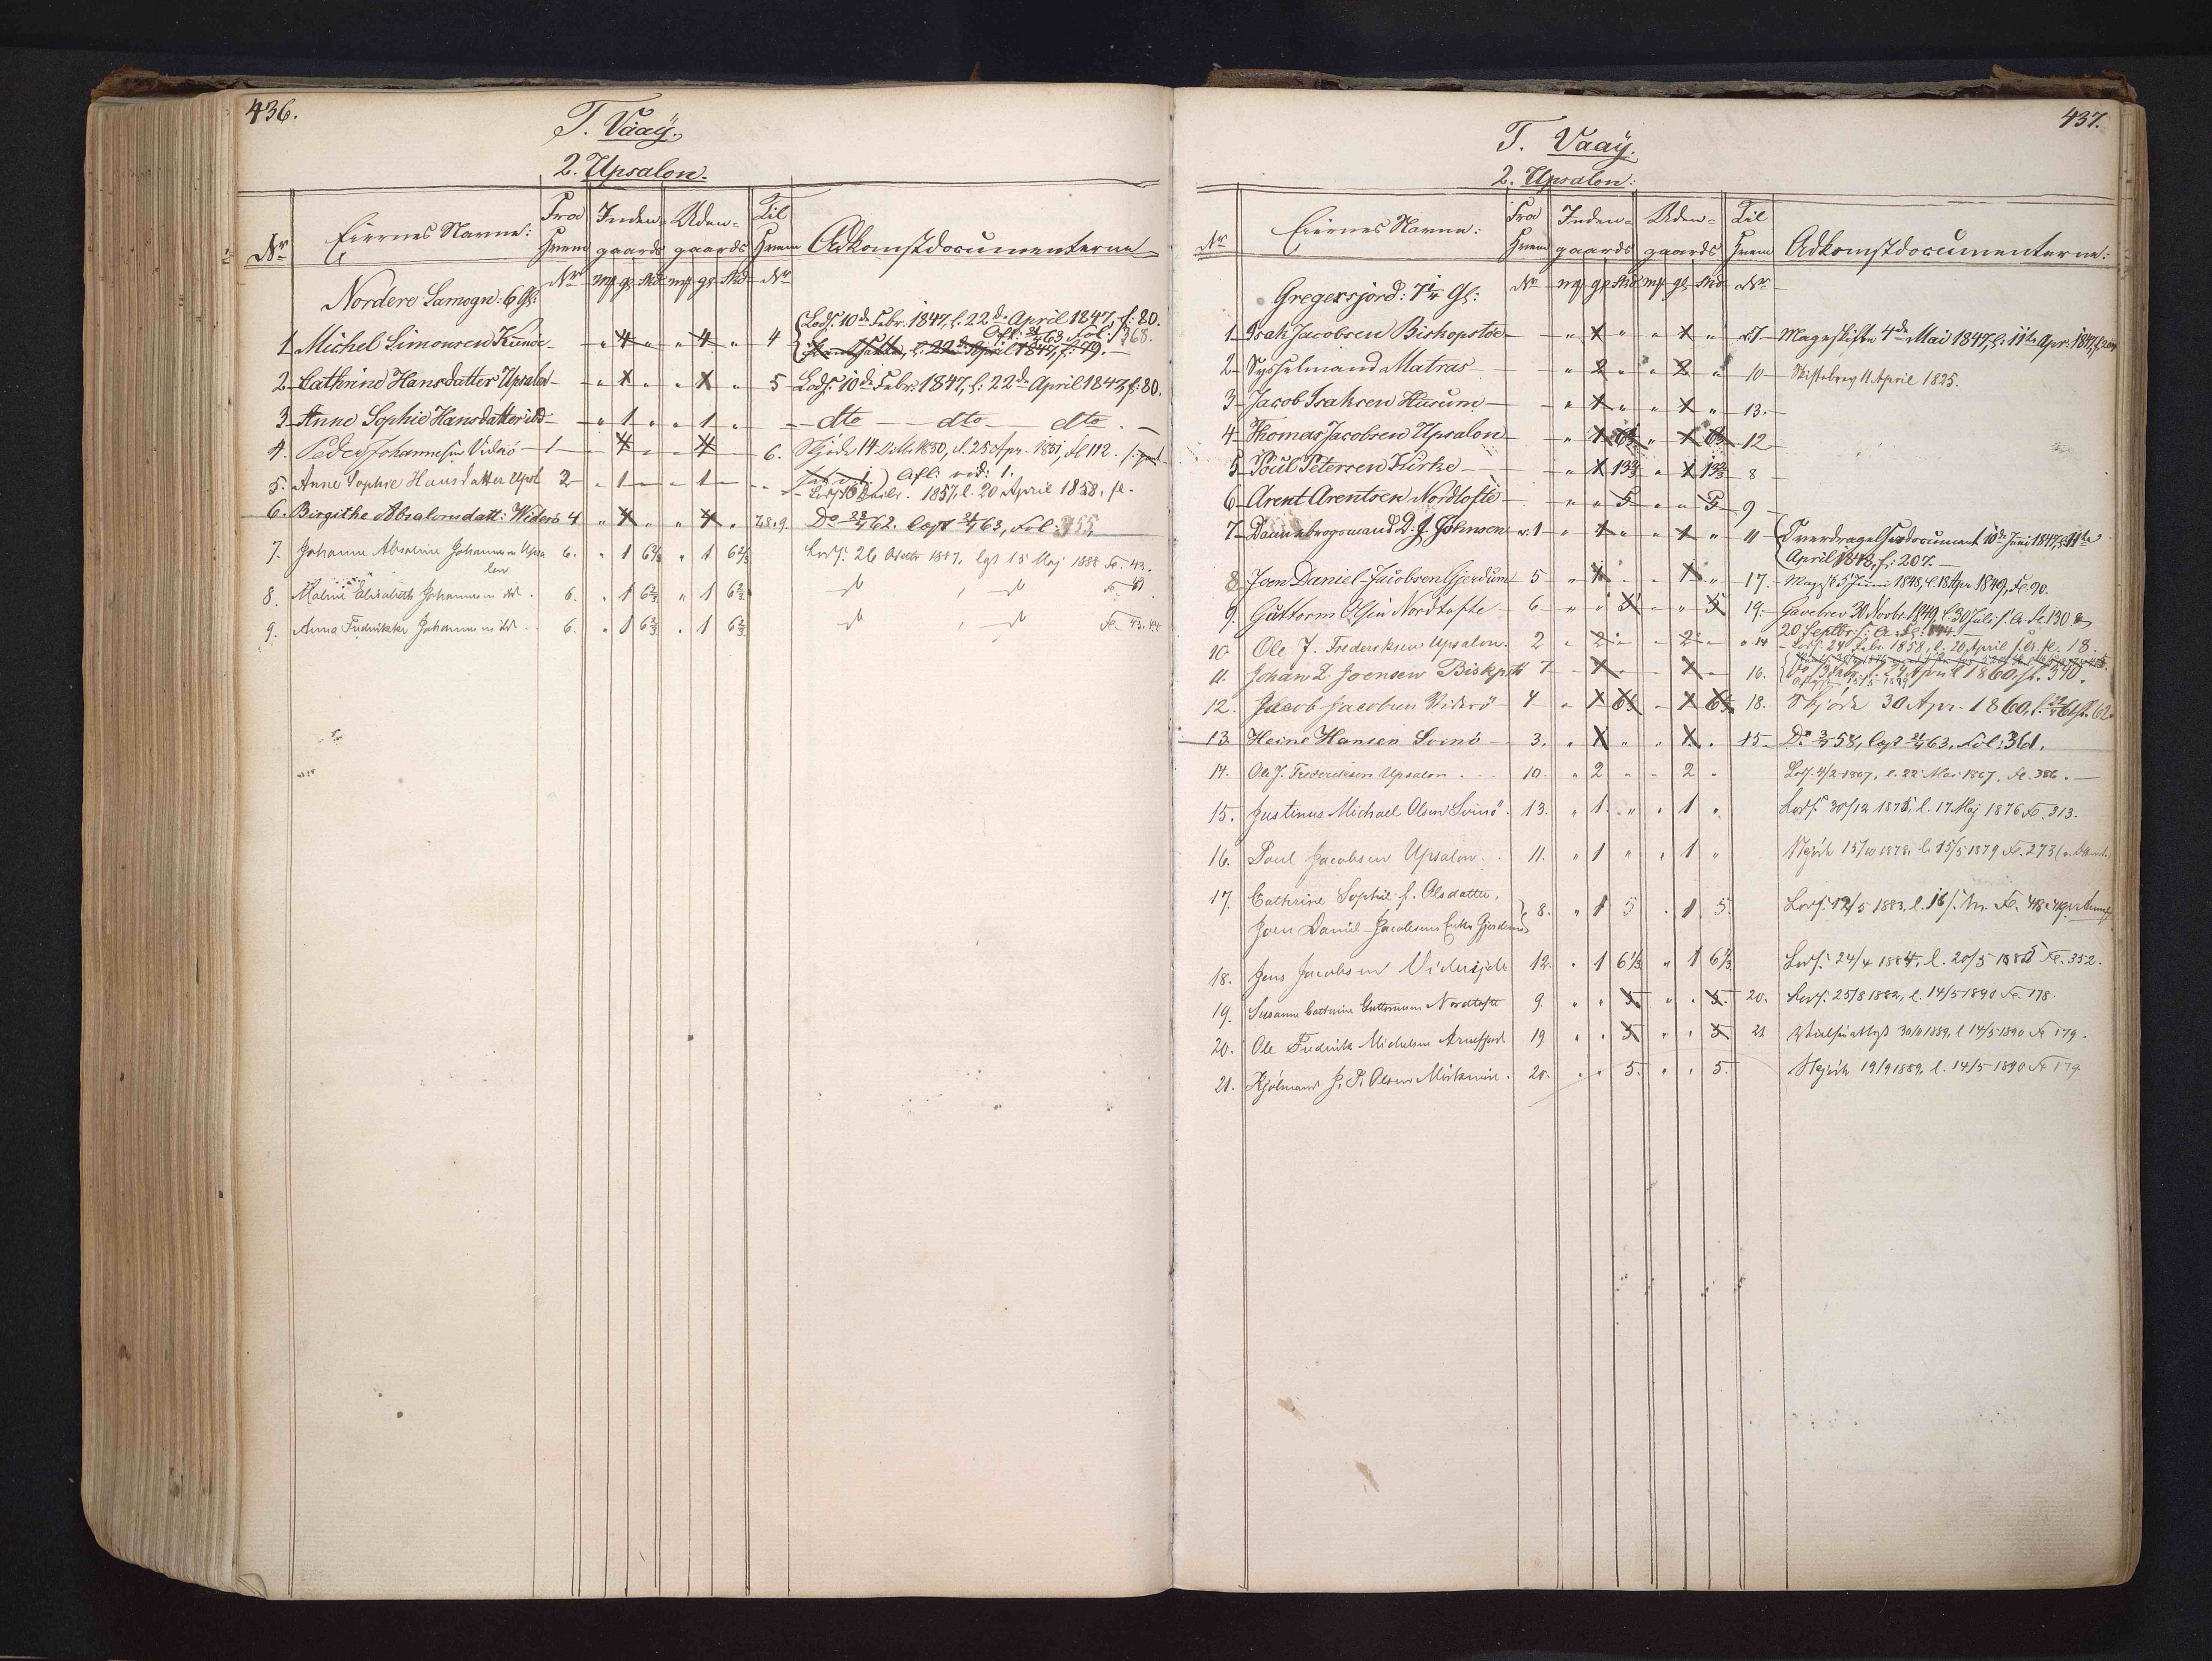 436.
T. Vaaÿ.
2. Upsalon.
Nr. Eiernes Navne: Fra Hvem Inden- gaards Uden- gaards Til Hvem Adkomstdocumenterne
Nr mk gl skd mk gl skd Nr
Nordere Samogn: 6 Gl:
1 Michel Simonsen Kunöe " 4 " " 4 " 4 Lods. 10de Febr. 1847, l. 22de April 1847, f. 80.
l. 22de April 1847, f: 79.
2 Cathrine Hansdatter Upsalon " 1 " " 1 " 5 Lods. 10de Febr. 1847, l. 22de April 1847, f: 80.
3 Anne Sophie Hansdatter ibd " 1 " " 1 " dto dto dto
4. Peder Johannesen Viderö 1 4 4 6. Skjöde 14 1850, l. 25 Apr. 1851, fl 112.
5. Anne Sophie Hansdatter Upsl 2 1 1 1857, l. 20 April 1858, fl.
6. Birgithe Absalonsdatt: Widerö 4 " 4 " " 4 " 7.8.9. Do 62. lgst 63, Fol: 355.
7. Johanne Absoline Johannesen Upsa 6. " 1 6⅔ " 1 6⅔ Lods. 26 1887, lgst 15 Maj 1888 Fo. 43.
lon
8. Malene Elisabeth Johannesen ibd. 6. " 1 6⅔ " 1 6⅔
9. Anna Fredrikke Johannesen ibd. 6. " 1 6⅔ " 1 6⅔ Fo 43.44
437.
T. Vaaÿ.
2. Upsalon:
Nr Eiernes Navne: Fra Hvem Inden- gaards Uden- gaards Til Hvem Adkomstdocumenterne:
Nr mk gl skd mk gl skd Nr
Gregersjord: 7¼ Gl:
1 Isak Jacobsen Bishopstöe " 1 " " 1 " 7 Mageskifte 4de Mai 1847, l. 11te Apr. 1847,
2 Sysselmand Matras " 2 " " 2 " 10 Skiftebrev 11 April 1825.
3 Jacob Isaksen Husum " 1 " " 1 " 13.
4 Thomas Jacobsen Upsalon " 1 6⅔ " 1 6⅔ 12
5 Poul Petersen Kirke " 1 13⅓ " 1 13⅓ 8
6 Arent Arentsen Nordtofte " " 5 " " 5 9
7 Dannebrogsmand D. J. Johnsen v. 1 " 1 " " 1 " 11 Overdragelsesdocument 10de Juni 1847, l. 11te
April 1848, f: 207.
8 Joen Daniel Jacobsen Gjerdum 5 " 1 " " 1 " 17. Magsk. 5 Juni 1848, l. 18 Apr 1849, Fl 90.
9. Guttorm Olsen Nordtofte 6 " " 5 " " 5 19. Gavebrev 30 Novbr. 1849, l. 30 Juli s. A. fl. 130 &
20 Septbr. s. A.
10 Ole J. Frederiksen Upsalon. 2 " 2 " " 2 " 14 Lods. 24 Febr. 1858, l. 20 April s. A. fl. 18.
11. Johan D. Joensen Biskpst 7 1 1 16. l. 24 April 1860, fl. 340.
12. Jacob Jacobsen Viderö 4 " 1 6⅔ " 1 6⅔ 18. Skjöde 30 Apr. 1860, l. 61, fl. 62.
13. Heine Hansen Svinö 3. " 1 " " 1 " 15. Do 58, lgst 63, Fol: 361.
14. Ole J. Frederiksen Upsalon 10. " 2 " " 2 " Lods. 4/2 1867, l. 22 Mai 1867, fl. 386.
15. Justinus Michael Olsen Svinö 13. " 1 " " 1 " Lods. 30/12 1875, l. 17 Maj 1876 Fo. 313.
16. Poul Jacobsen Upsalon 11. " 1 " " 1 " Skjöde 15/10 1878, l. 15/5 1879 Fo. 273
17. Cathrine Sophie f. Olsdatter,
Joen Daniel Jacobsens Enke Gjerdum 8. " 1 5 " 1 5. Lods. 12/5 1883, l. 16/ s. M. Fo. 48.
18. Jens Jacobsen Viderejde 12. " 1 6⅔ " 1 6⅔ Lods. 24/4 1884, l. 20/5 1885 Fo. 352.
19. Susanne Cathrine Guttormsen Nordtofte 9. " " 5 " " 5 20. Lods. 25/8 1882, l. 14/5 1890 Fo. 178.
20. Ole Fredrik Michelsen Arnefjord 19 " " 5 " " 5 21 30/11 1889, l 14/5 1890 Fo 179.
21. Kjölmand J. P. Olsen Mikines. 20. " " 5. " " 5. Skjöde 19/9 1889, l. 14/5 1890 Fo 179.